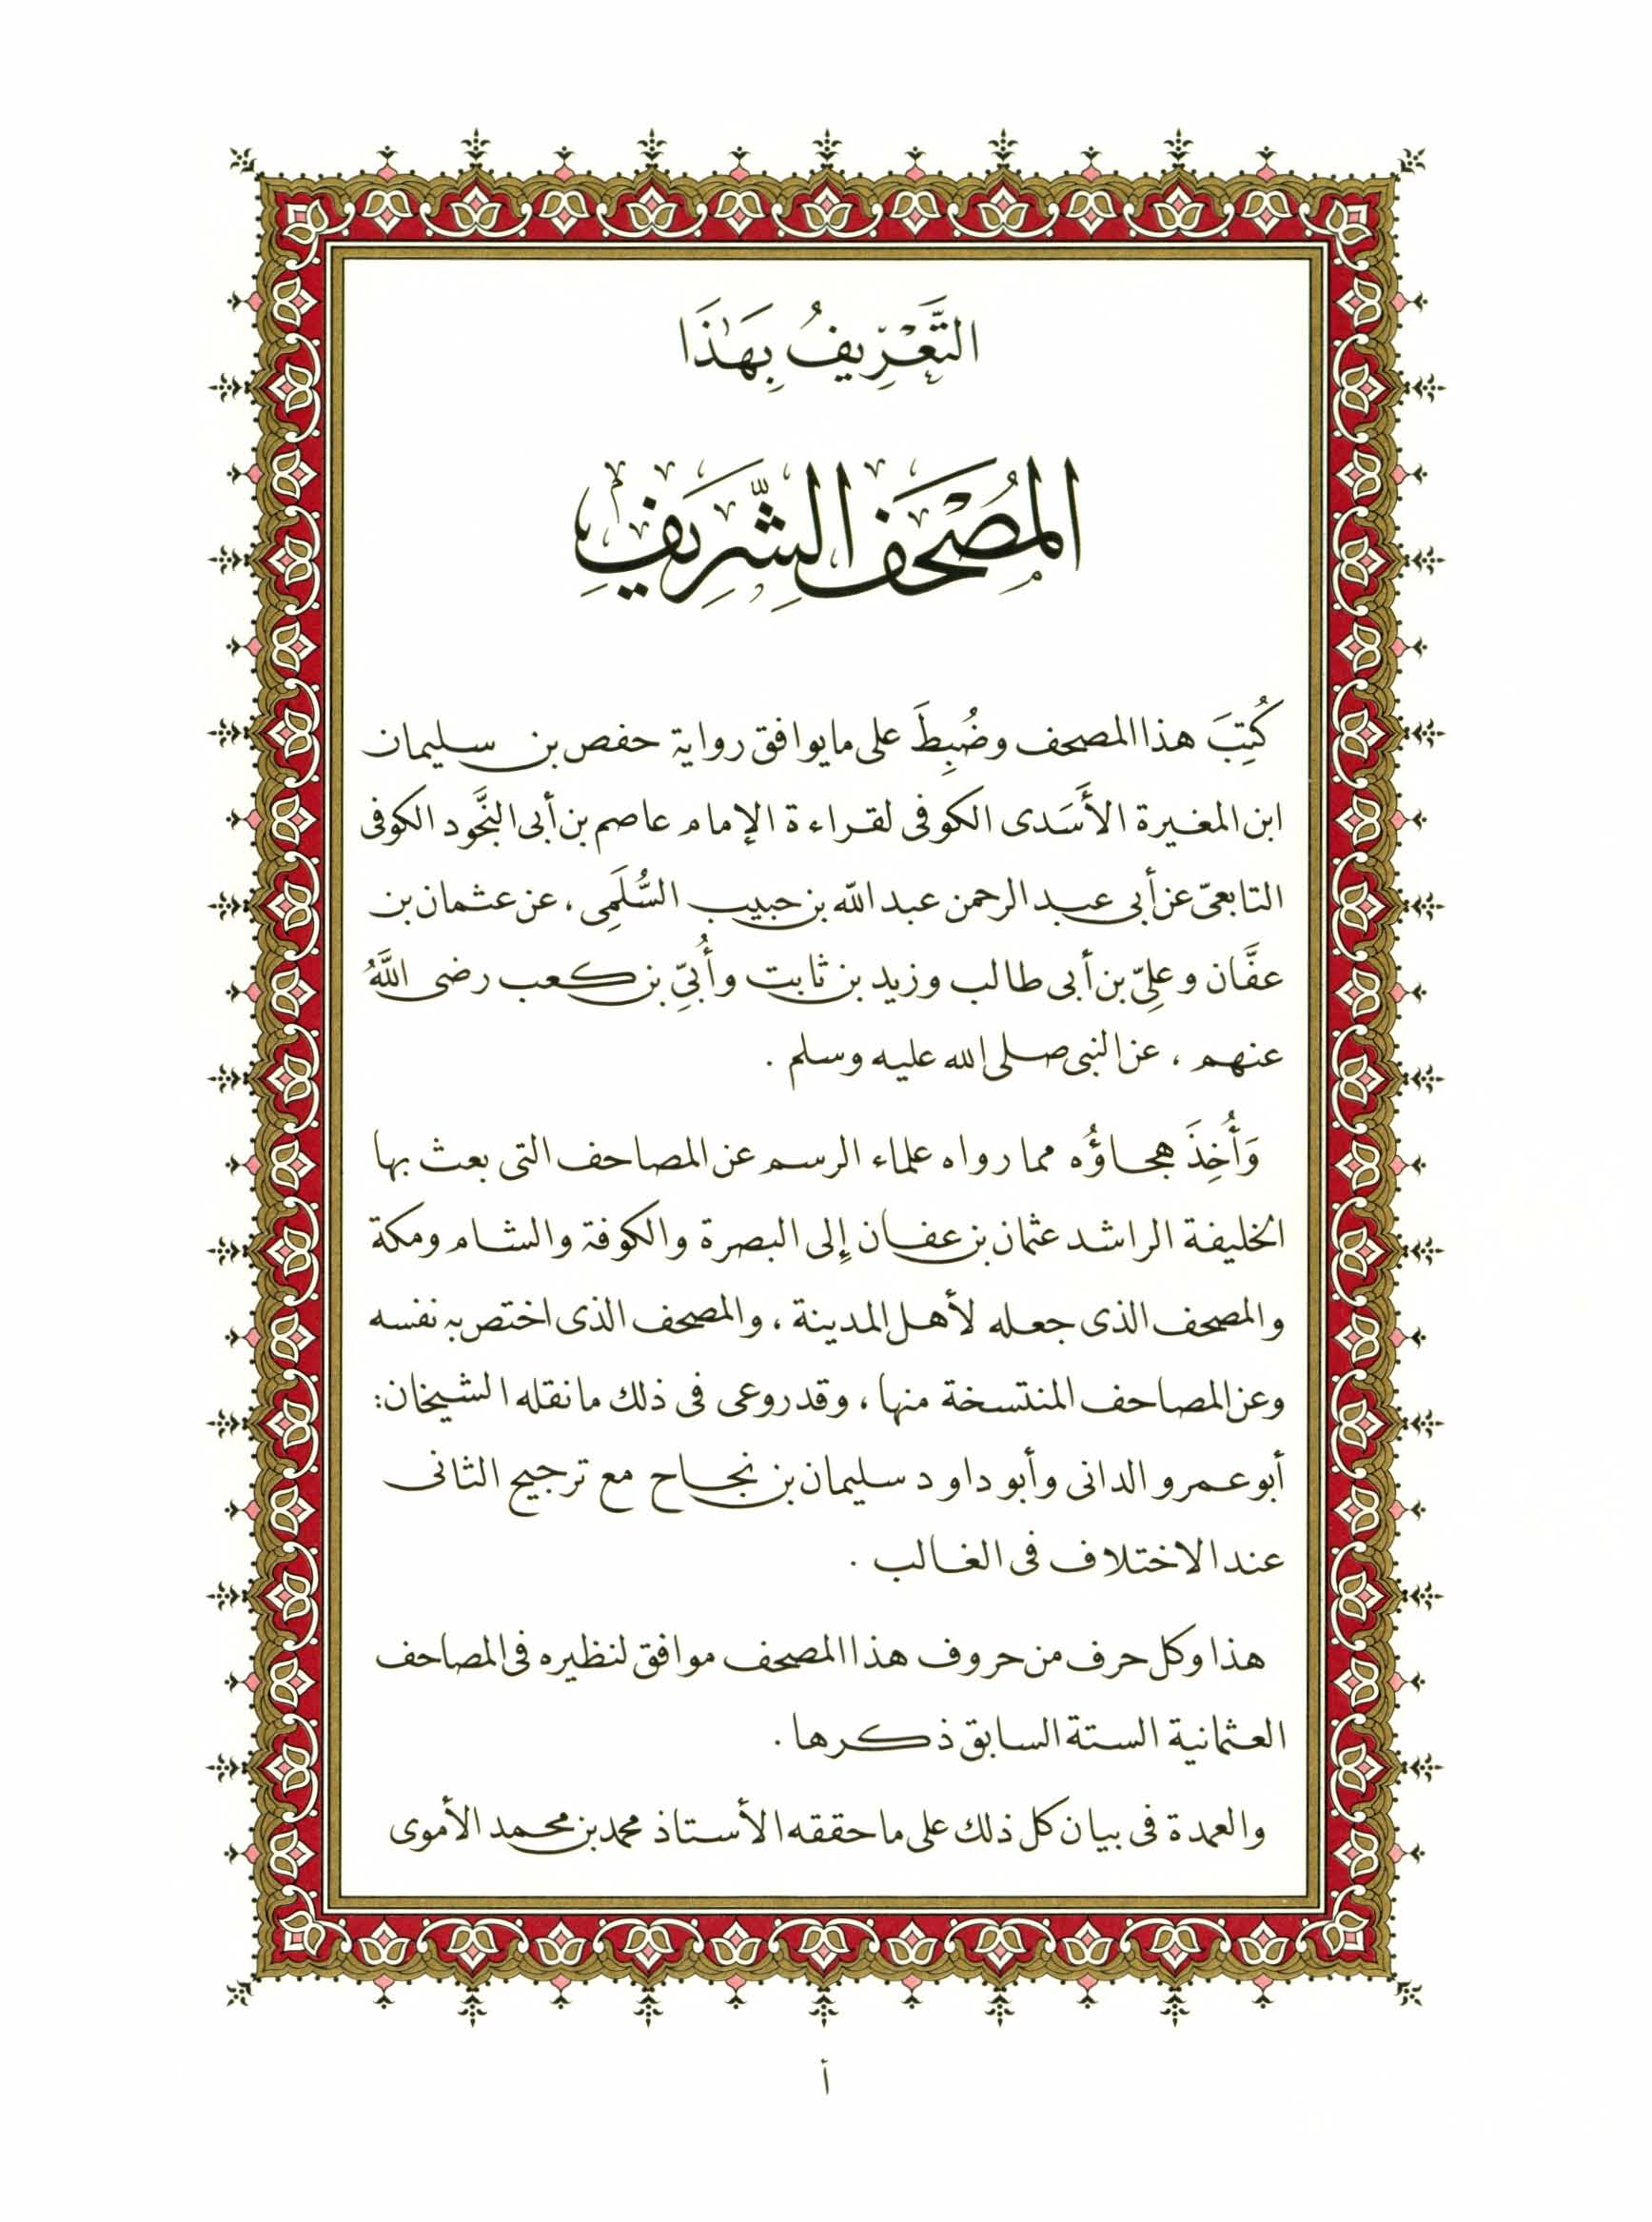 التَّعْرِيفُ بِهَٰذَا
المُصْحَفِ الشَّرِيفِ
كُتِبَ هذا المصحف وضُبِطَ على ما يوافق رواية حفص بن سليمان
ابن المغيرة الأَسَدى الكوفى لقراءة الإمام عاصم بن أبى النَّجُود الكوفى
التابعىّ عن أبى عبد الرحمن عبد الله بن حبيب السُّلَمِى ، عن عثمان بن
عفَّان وعلِىّ بن أبى طالب وزيد بن ثابت وأُبَىِّ بن كعب رضى اللَّهُ
عنهم ، عن النبى صلى الله عليه وسلم .
وَأُخِذَ هجاؤُه مما رواه علماء الرسم عن المصاحف التى بعث بها
الخليفة الراشد عثمان بن عفان إلى البصرة والكوفة والشام ومكة
والمصحف الذى جعله لأهل المدينة ، والمصحف الذى اختص به نفسه
وعن المصاحف المنتسخة منها ، وقد روعى فى ذلك ما نقله الشيخان:
أبو عمرو الدانى وأبو داود سليمان بن نجاح مع ترجيح الثانى
عند الاختلاف فى الغالب .
هذا وكل حرف من حروف هذا المصحف موافق لنظيره فى المصاحف
العثمانية الستة السابق ذكرها .
والعمدة فى بيان كل ذلك على ما حققه الأستاذ محمد بن محمد الأموى
أ